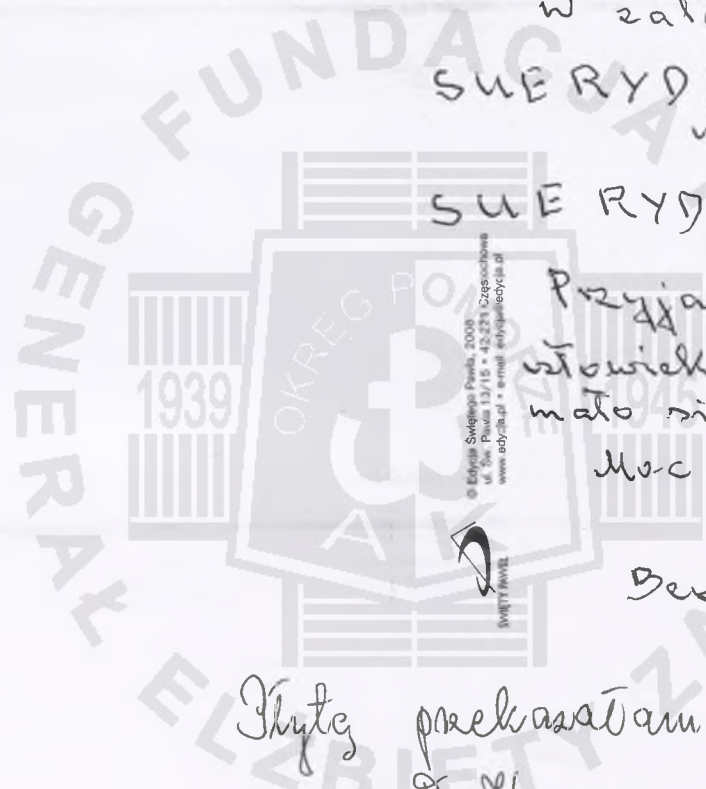 W zał
SUERYD
SUE RYD
Przyja
człowiek
mało si
Moc
Płytę przekazałam
© Edycja Świętego Pawła, 2008
ul. Św. Pawła 13/15 • 42-221 Częstochowa
www.edycja.pl • e-mail: edycja@edycja.pl
ŚWIĘTY PAWEŁ
FUNDACJA
GENERAŁ ELŻBIETY ZA
OKRĘG POMORZE
1939
1945
AK